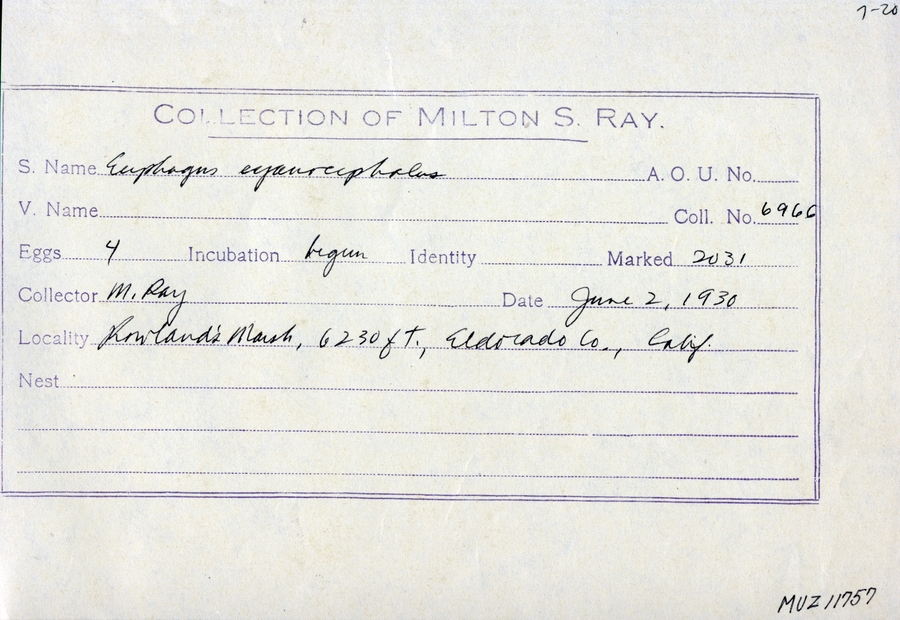 7-20
COLLECTION OF MILTON S. RAY.
S. Name Euphagus cyanocephalus A. O. U. No.
V. Name Coll. No. 6966
Eggs 4 Incubation begun Identity Marked 2031
Collector M. Ray Date June 2, 1930
Locality Rowland's Marsh, 6230 ft., Eldorado Co., Calif.
Nest
MVZ 11757